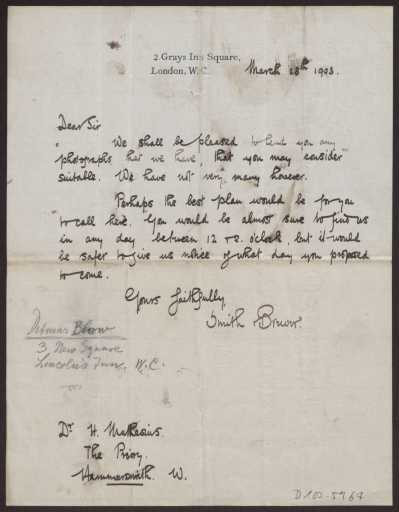 2 Grays Inn Square,
London, W.C.
March 28th 1903.
Dear Sir
We shall be pleased to lend you any
photographs that we have, that you may consider
suitable. We have not very many however.
Perhaps the best plan would be for you
to call here. You would be almost sure to find us
in any day between 12 & 2. o'clock, but it would
be safer to give us notice of what day you proposed
to come.
Yours faithfully,
Smith & Brewer.
3. New Square
Lincoln's Inn, W.C.
Dr H. Muthesius.
The Priory.
Hammersmith. W.
D 102-5964